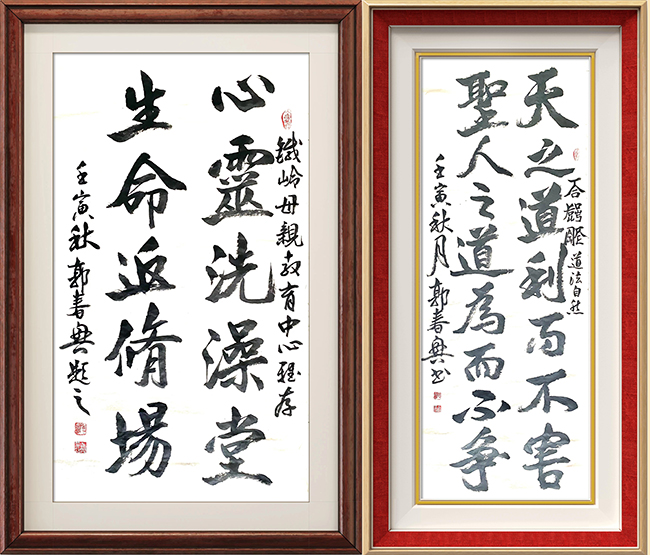 心靈洗澡堂
鐵岭母親教育中心雅存
生命返脩場
壬寅秋郭春興題之
天之道利而不害
道法自然
聖人之道為而不争
壬寅秋月郭春興书